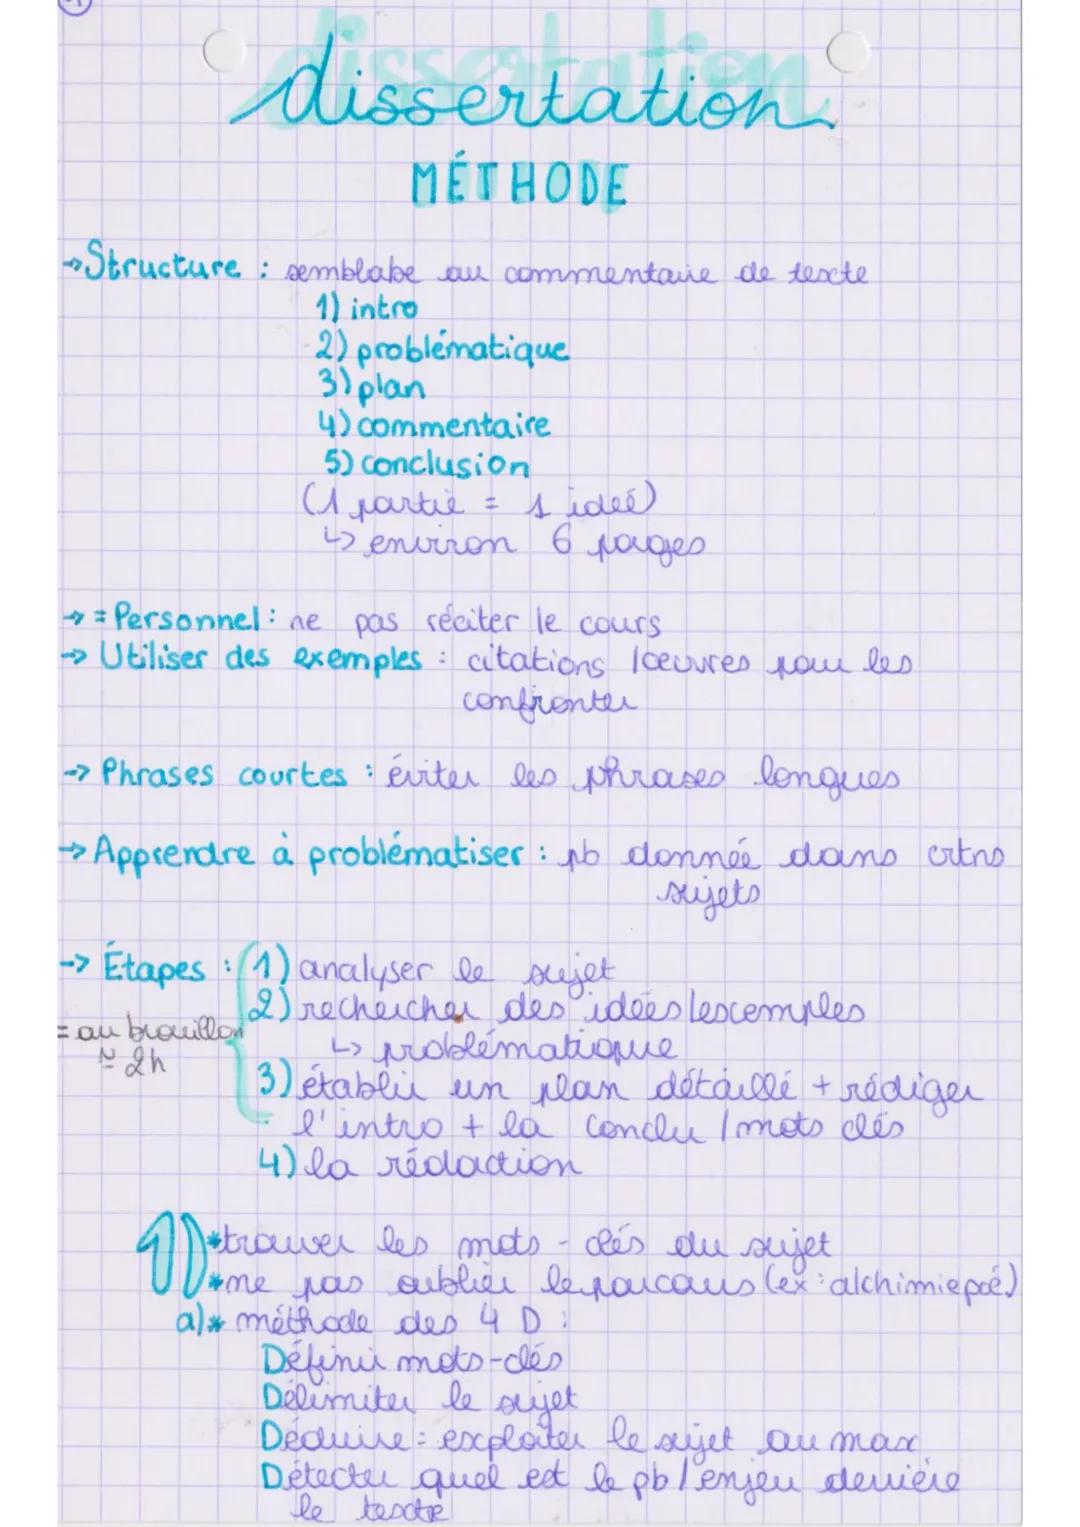 dissertation
MÉTHODE
→ Structure : semblabe au commentaire de texte
1) intro
2) problématique
3) plan
4) commentaire
5) conclusion
(1 partie = 1 ideé)
↳ environ 6 pages
→ = Personnel : ne pas réciter le cours
→ Utiliser des exemples : citations /œuvres pour les
confronter
→ Phrases courtes : éviter les phrases longues
→ Apprendre à problématiser : pb donnée dans crtns
sujets
→ Étapes : 1) analyser le sujet
2) rechercher des idées/exemples
= au brouillon
↳ problématique
≈ 2h
3) établir un plan détaillé + rédiger
l'intro + la conclu / mots clés
4) la rédaction
1) * trouver les mots-clés du sujet
* ne pas oublier le parcours (ex : alchimie poé)
a) * méthode des 4 D :
Définir mots-clés
Délimiter le sujet
Déduire : exploiter le sujet au max
Détecter quel est le pb / enjeu derrière
le texte